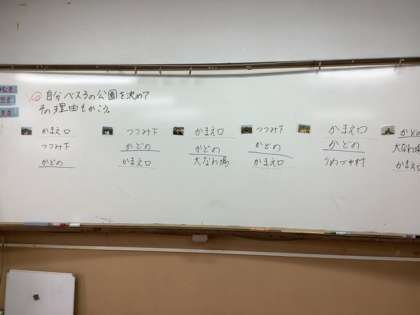 自分ベスト3の公園を決めて
その理由もかこう。
かまえ口
つつみ下
かどの
つつみ下
かどの
かまえ口
かまえ口
かどの
大なわ場
つつみ下
かどの
かまえ口
かまえ口
かどの
かどの
大なわ場
かまえ